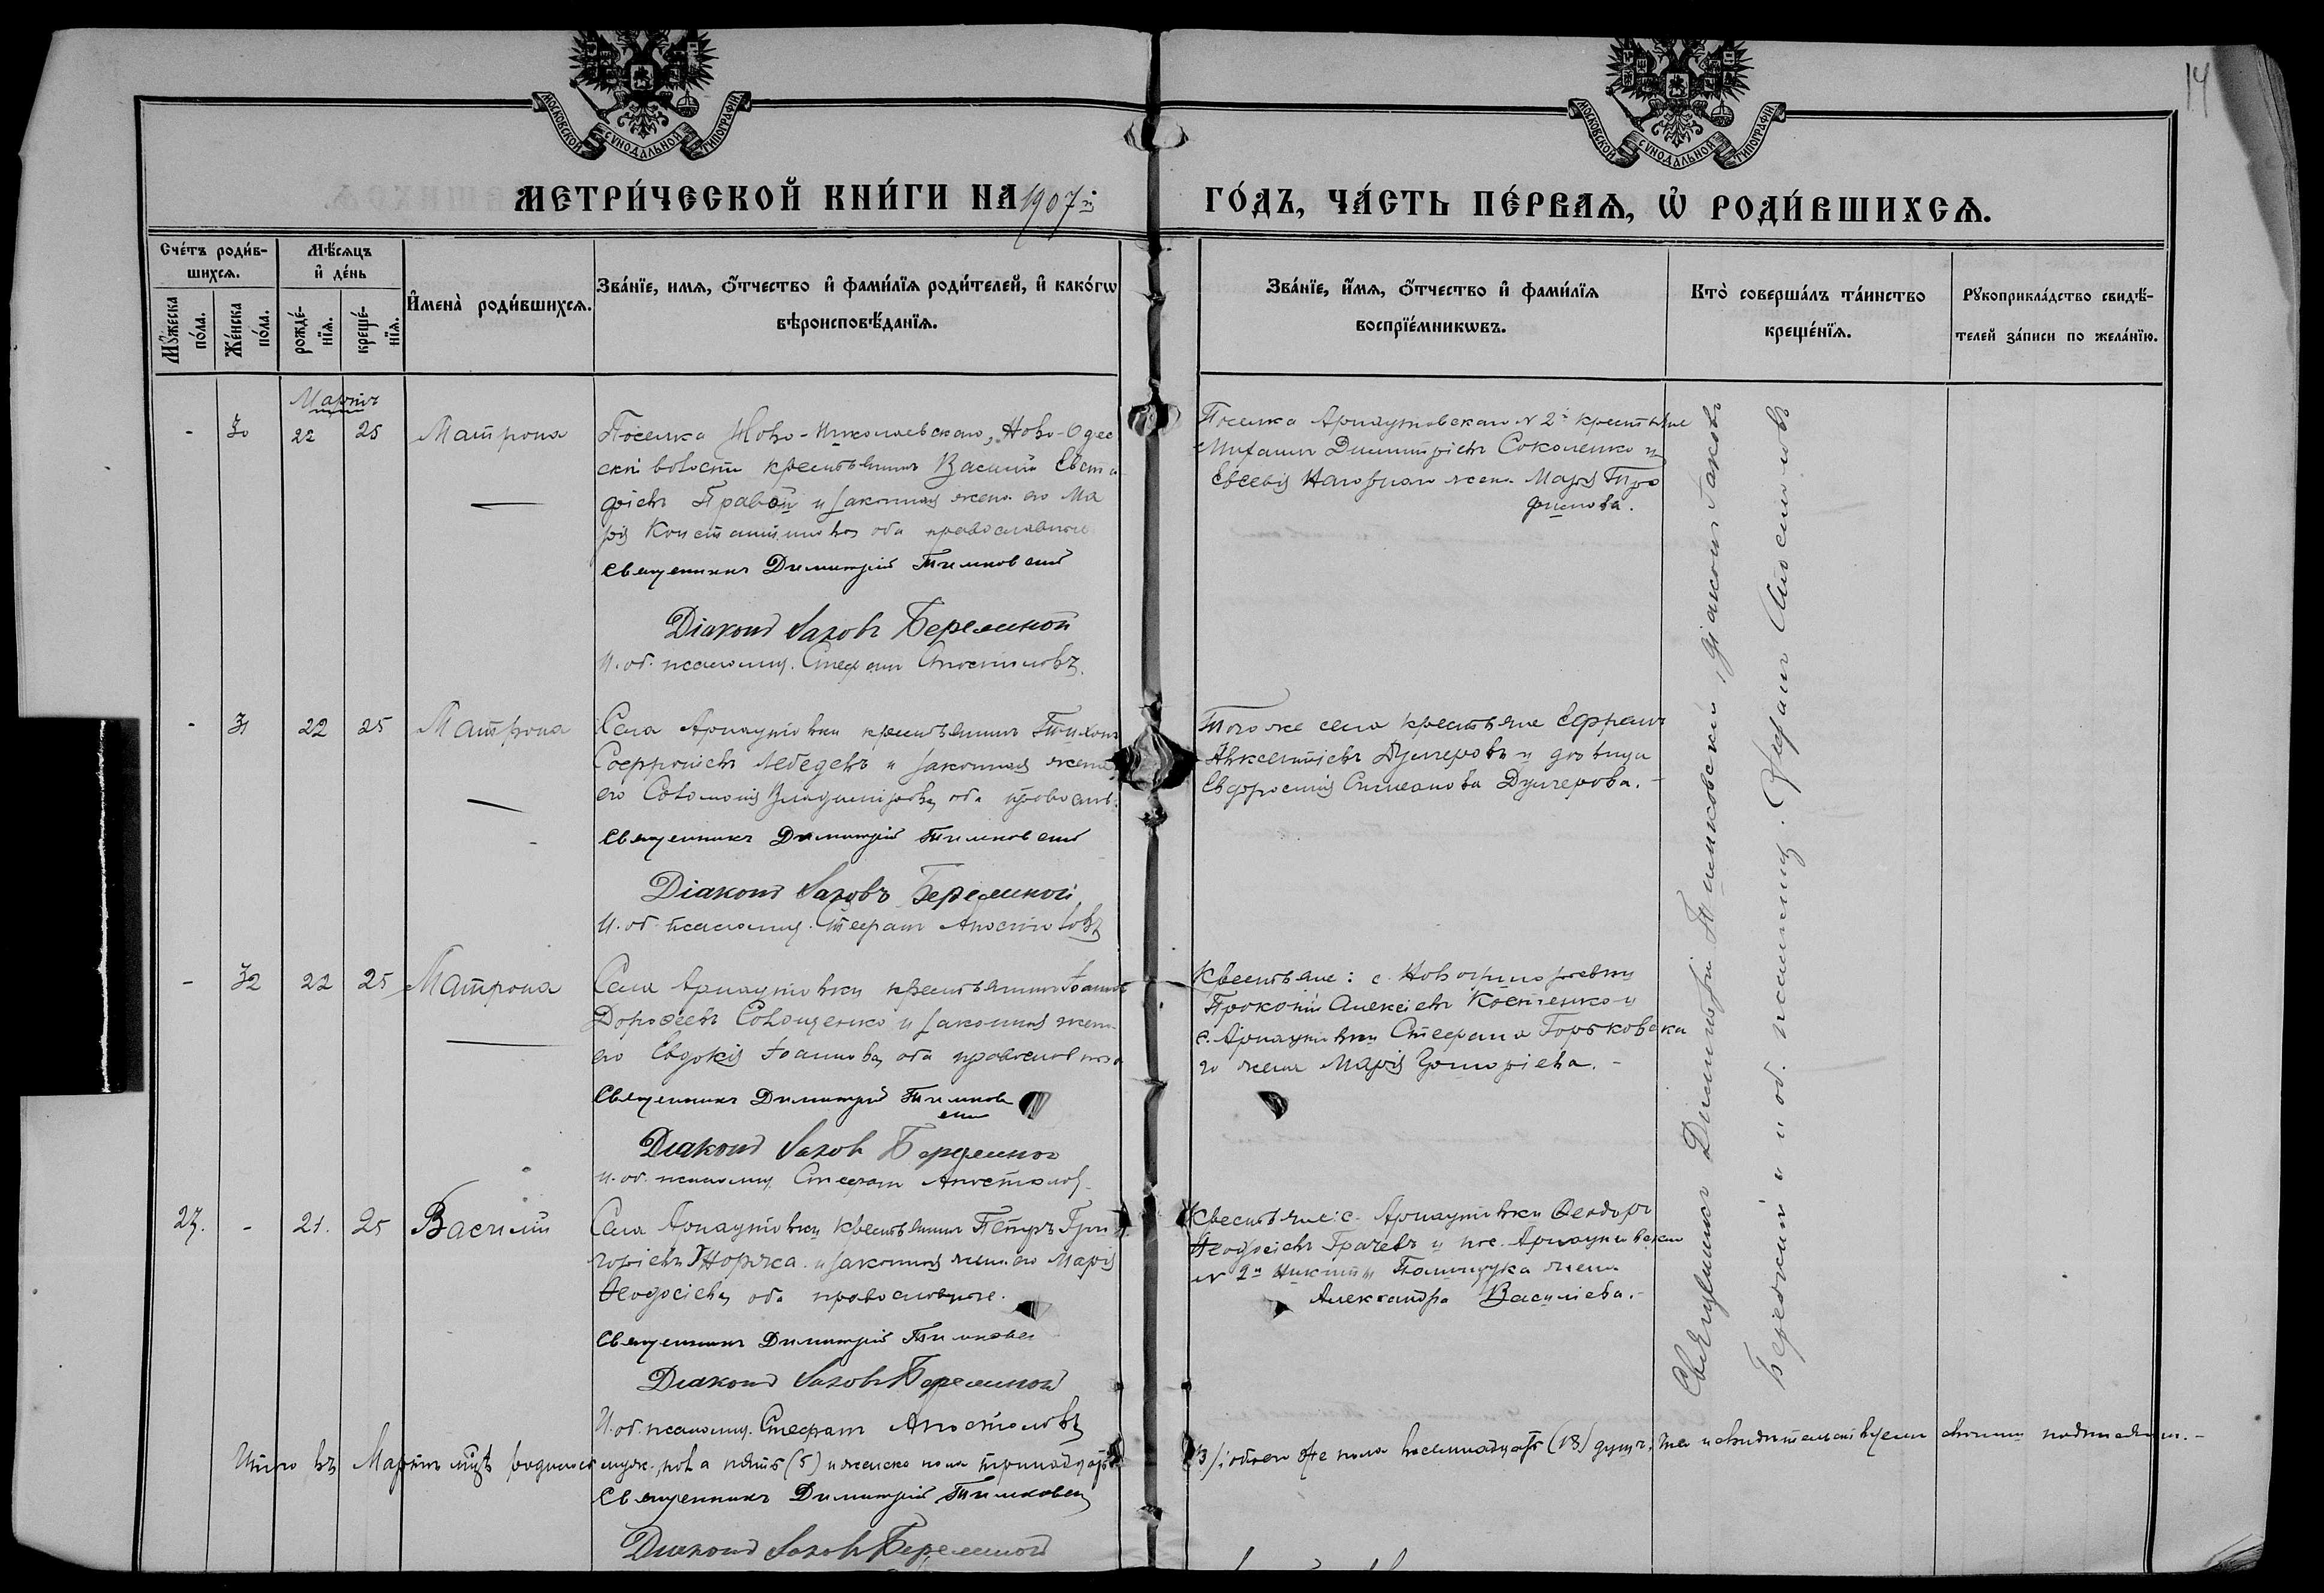 14
МОСКОВСКОЙ СѴНОДАЛЬНОЙ ТИПОГРАФІИ
МОСКОВСКОЙ СѴНОДАЛЬНОЙ ТИПОГРАФІИ
МЕТРИ́ЧЕСКОЙ КНИ́ГИ НА 1907й
ГО́ДЪ, ЧА́СТЬ ПЕ́РВАЯ, Ѡ҆ РОДИ́ВШИХСѦ.
Сче́тъ роди́в-
шихсѧ.
Мꙋ́жеска по́ла.
Же́нска по́ла.
Мѣ́сѧцъ
и҆ де́нь
рожде́-
нїѧ.
креще́-
нїѧ.
И҆мена̀ роди́вшихсѧ.
Зва́нїе, имѧ, ѻ҆́тчество и҆ фами́лїѧ роди́телей, и҆ како́гѡ
вѣроисповѣ́данїѧ.
Зва́нїе, и҆́мѧ, ѻ҆́тчество и҆ фами́лїѧ
воспрїе́мникѡвъ.
Кто̀ соверша́лъ та́инство
креще́нїѧ.
Рꙋкоприкла́дство свидѣ́-
телей за́писи по жела́нїю.
Мартъ
- 30 22 25 Матрона
Поселка Ново-Николаевскаго, Ново-Одес
ской волости крестьянинъ Василій Евста
фіевъ Правой и законная жена его Ма
рія Константинова, оба православные
Священникъ Димитрій Тимковскій
Діаконъ Іаковъ Бережной
И. об. псаломщ. Стефанъ Апостоловъ
Поселка Арнаутовскаго N 2й крестьяне
Михаилъ Димитріевъ Соколенко и
Евсевія жена Марія Тро
фимова.
- 31 22 25 Матрона
Села Арнаутовки крестьянинъ Тихонъ
Софроніевъ Лебедевъ и законная жена
его Соломонія Владимірова, оба православ.
Священникъ Димитрій Тимковскій
Діаконъ Іаковъ Бережной
И. об. псаломщ. Стефанъ Апостоловъ
Того же села крестьяне Ефремъ
Авксентіевъ Дучеровъ и дѣвица
Евфросинія Симеонова Дучерова. -
- 32 22 25 Матрона
Села Арнаутовки крестьянинъ Іоаннъ
Дороѳеевъ Соло­щенко и законная жена
его Евдокія Іоаннова, оба православные
Священникъ Димитрій Тимков
скій
Діаконъ Іаковъ Бережной
И. об. псаломщ. Стефанъ Апостоловъ
Крестьяне: с. Новогригорьевки
Прокопій Алексіевъ Костенко и
с. Арнаутовки Стефана Горьковска
го жена Марія Григоріева. -
27. - 21. 25 Василій
Села Арнаутовки крестьянинъ Петръ Гри
горіевъ Норка и законная жена его Марія
Ѳеодосіева, оба православные.
Священникъ Димитрій Тимковск
Діаконъ Іаковъ Бережной
И. об. псаломщ. Стефанъ Апостоловъ
Крестьяне: с. Арнаутовки Ѳеодоръ
Грачевъ и пос. Арнаутовскаго
N 2й Никиты Полищука жена
Александра Васильева. -
Священникъ Димитрій Тимковскій, діаконъ Іаковъ
Бережной и и об. псаломщ. Стефанъ Апостоловъ
Итого въ Мартѣ мцѣ родилось муж. пола пять (5) и женска пола тринадцать
(13) обоего же пола восемнадцать (18) душъ, что и свидѣтельствуемъ своими подписями. -
Священникъ Димитрій Тимковск
Діаконъ Іаковъ Бережной